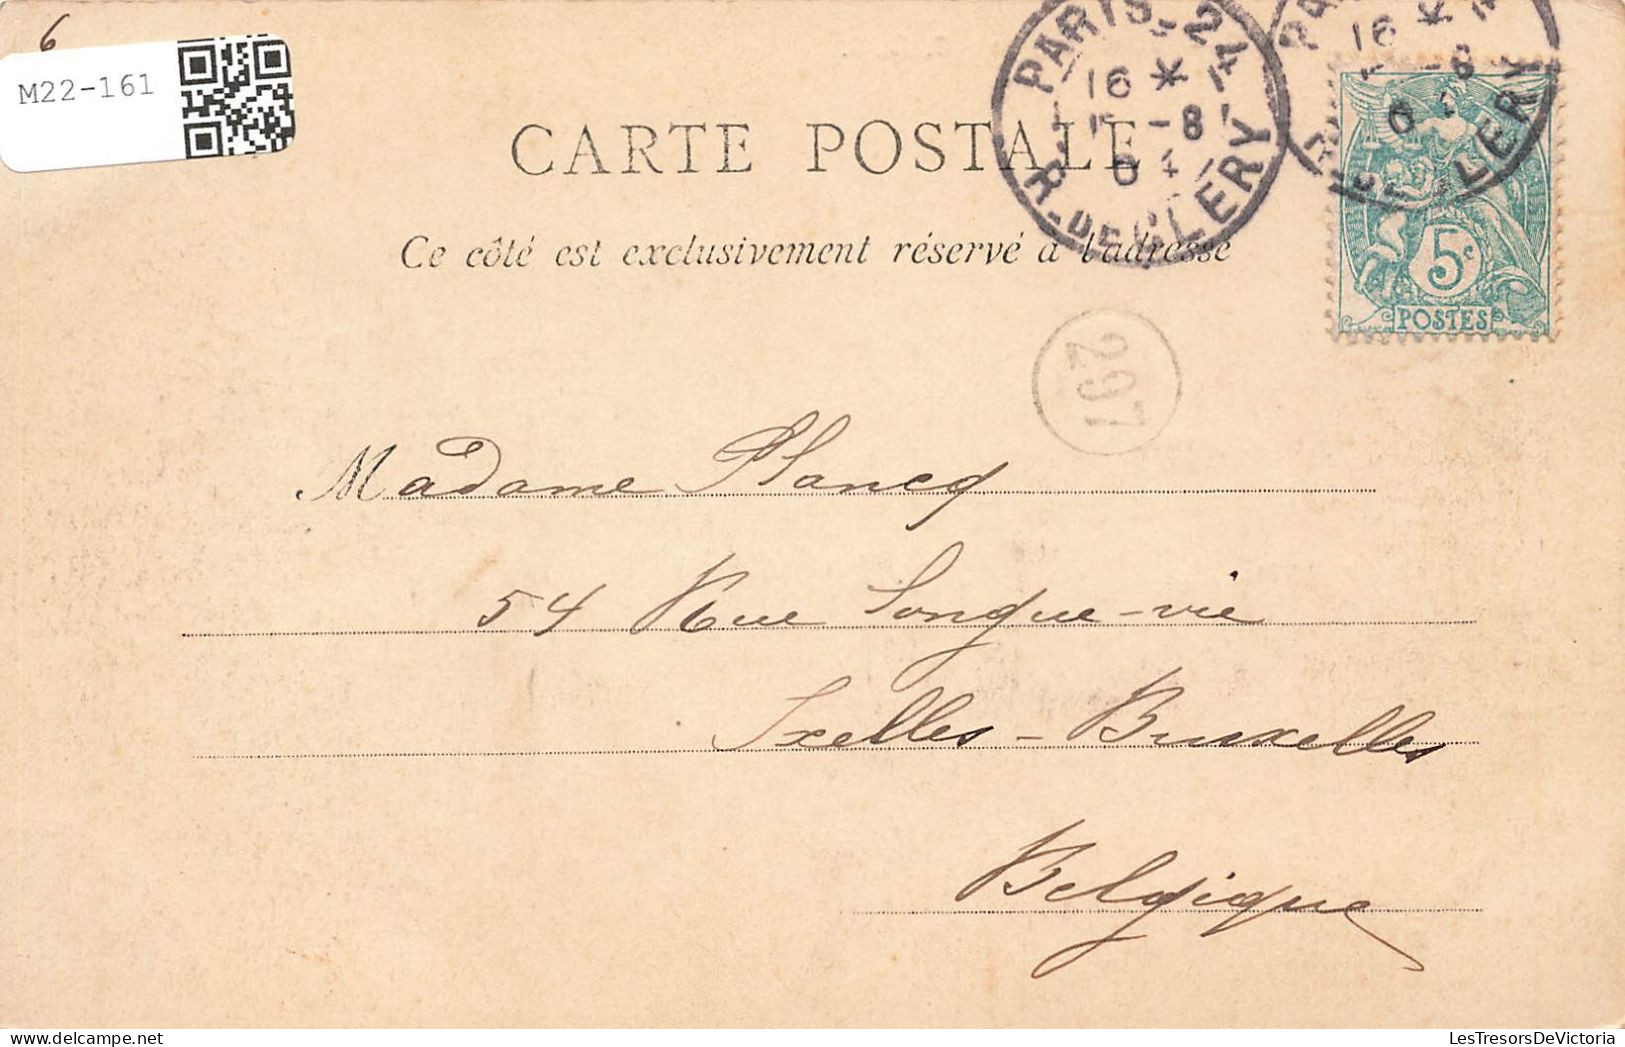 6
M22-161
CARTE POSTALE
Ce côté est exclusivement réservé à l'adresse
PARIS-24
16 * 1
-8
0
R. DE CLERY
PA
16 *
-8
0
LERY
5c
POSTES
297
Madame Plancq
54 Rue Longue-vie
Ixelles - Bruxelles
Belgique
LesTresorsDeVictoria